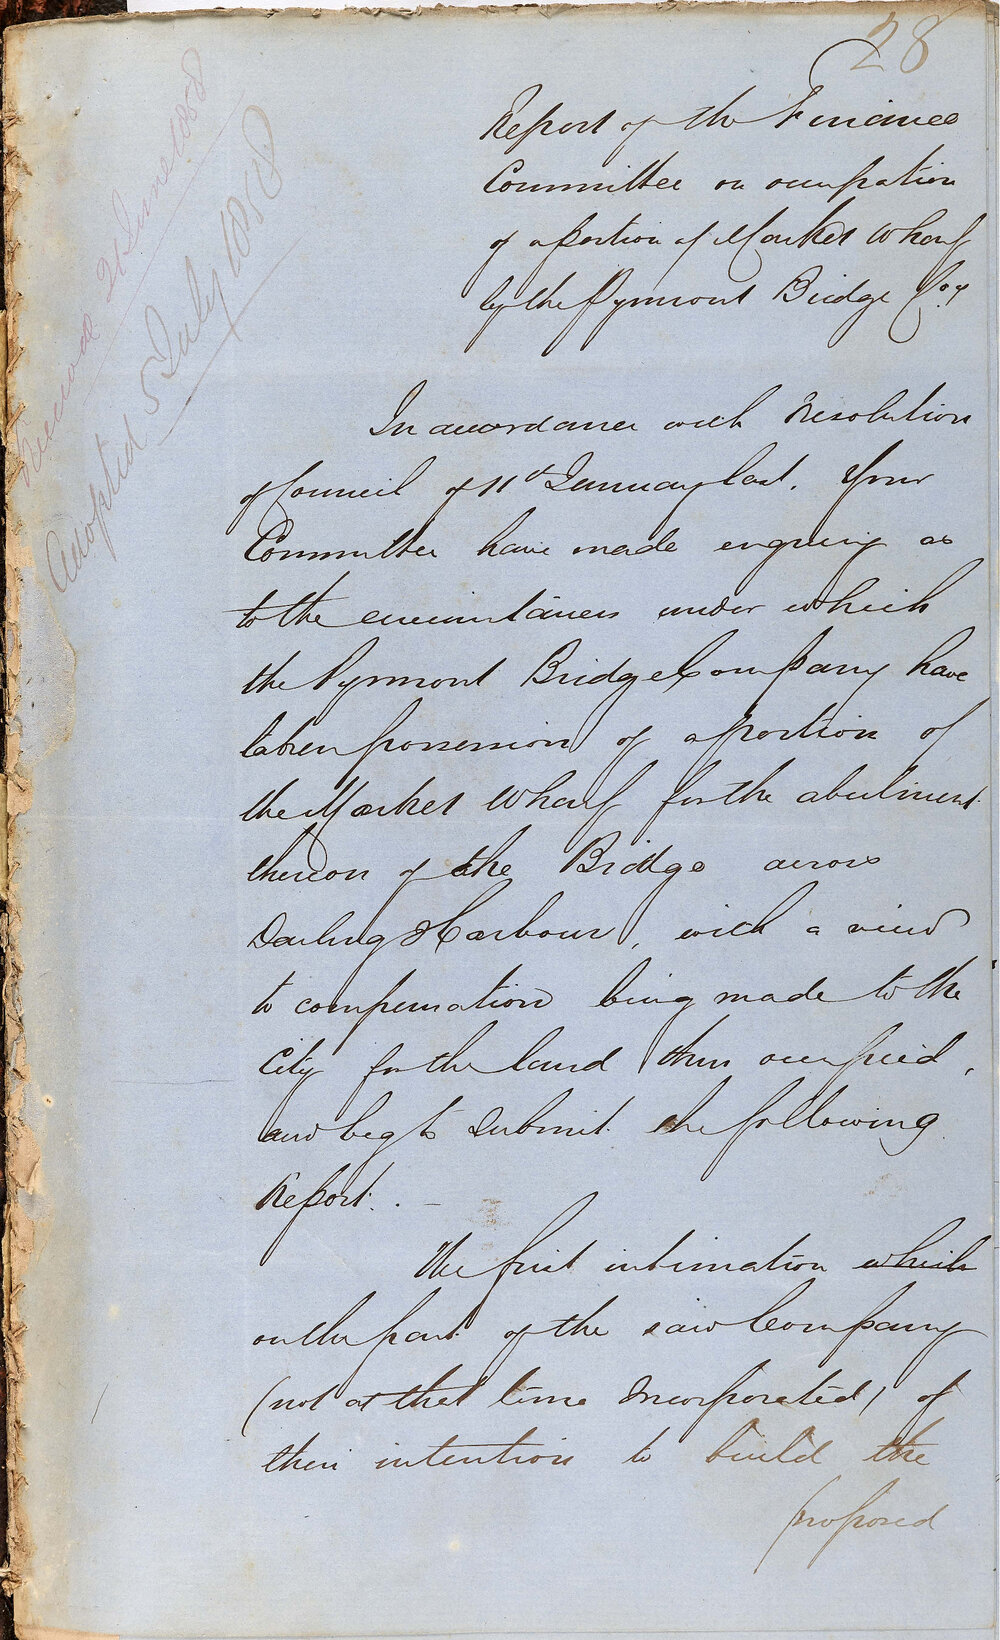 28
Report of the Finance
Committee on occupation
of a portion of Market Wharf
by the Pyrmont Bridge Coy
Received 21 June 1858
Adopted 5 July 1858
In accordance with Resolution
of Council of 11th January last. Your
Committee have made enquiry as
to the circumstances under which
the Pyrmont Bridge Company have
taken possession of a portion of
the Market Wharf for the abutment
thereon of the Bridge across
Darling Harbour, with a view
to compensation being made to the
City for the land thus occupied,
and beg to submit the following
Report. . —
The first intimation which
on the part of the said Company
(not at that time Incorporated) of
their intention to build the
proposed